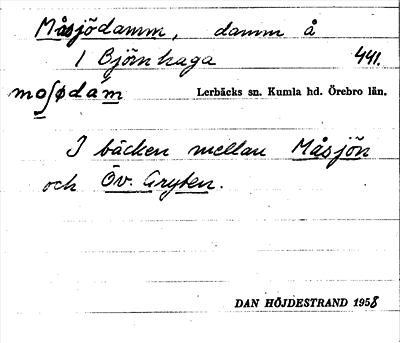 Måsjödamm, damm å
1 Björnhaga 441.
mosʃødam Lerbäcks sn. Kumla hd. Örebro län.
I bäcken mellan Måsjön
och Öv. Gryten.
DAN HÖJDESTRAND 1958